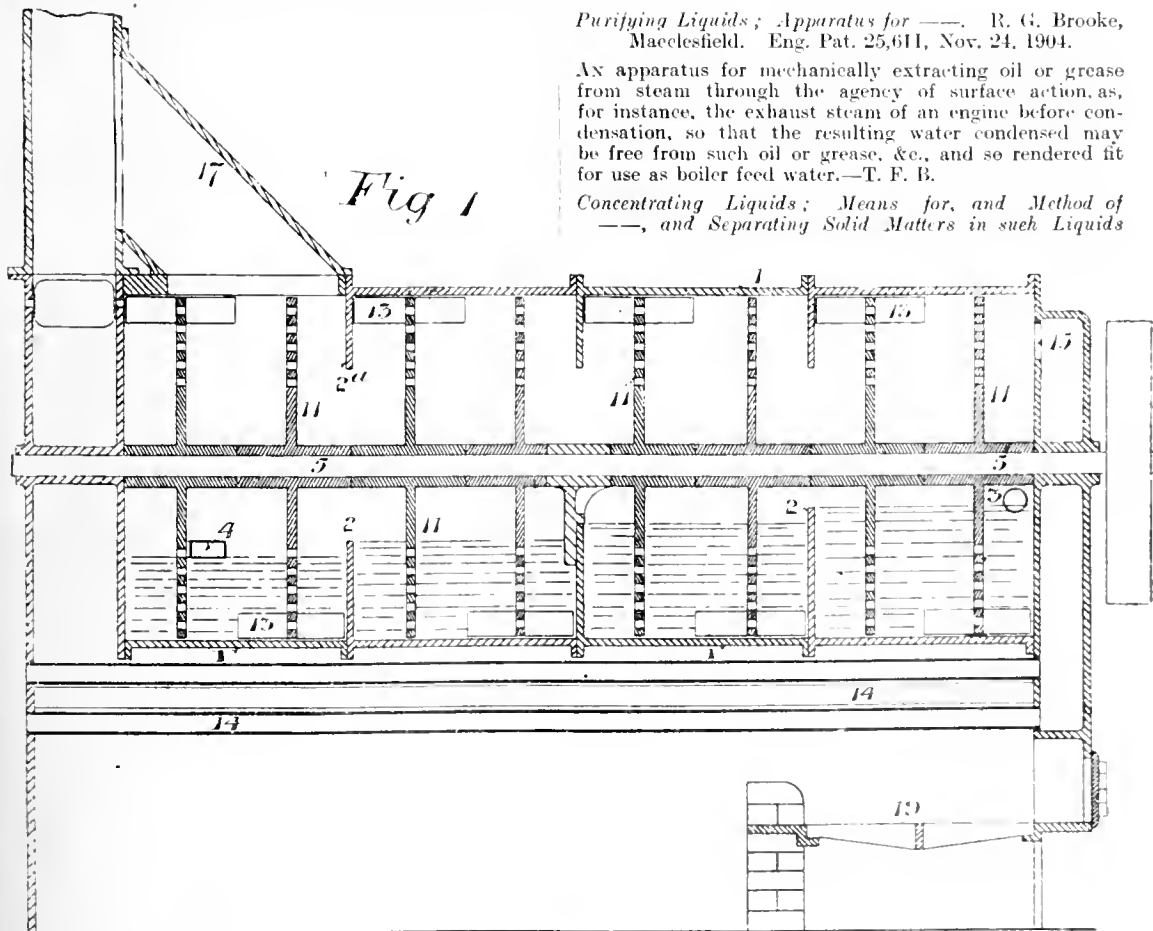 Purifying Liquids; Apparatus for ——. R. G. Brooke,
Macclesfield. Eng. Pat. 25,611, Nov. 24, 1904.
AN apparatus for mechanically extracting oil or grease
from steam through the agency of surface action, as,
for instance, the exhaust steam of an engine before con-
densation, so that the resulting water condensed may
be free from such oil or grease, &c., and so rendered fit
for use as boiler feed water.—T. F. B.
Concentrating Liquids; Means for, and Method of
——, and Separating Solid Matters in such Liquids
17
Fig 1
1
13 15
15
2a
11 11 11
5 5
3
4 2 11 2
13
1 1
14
14
19